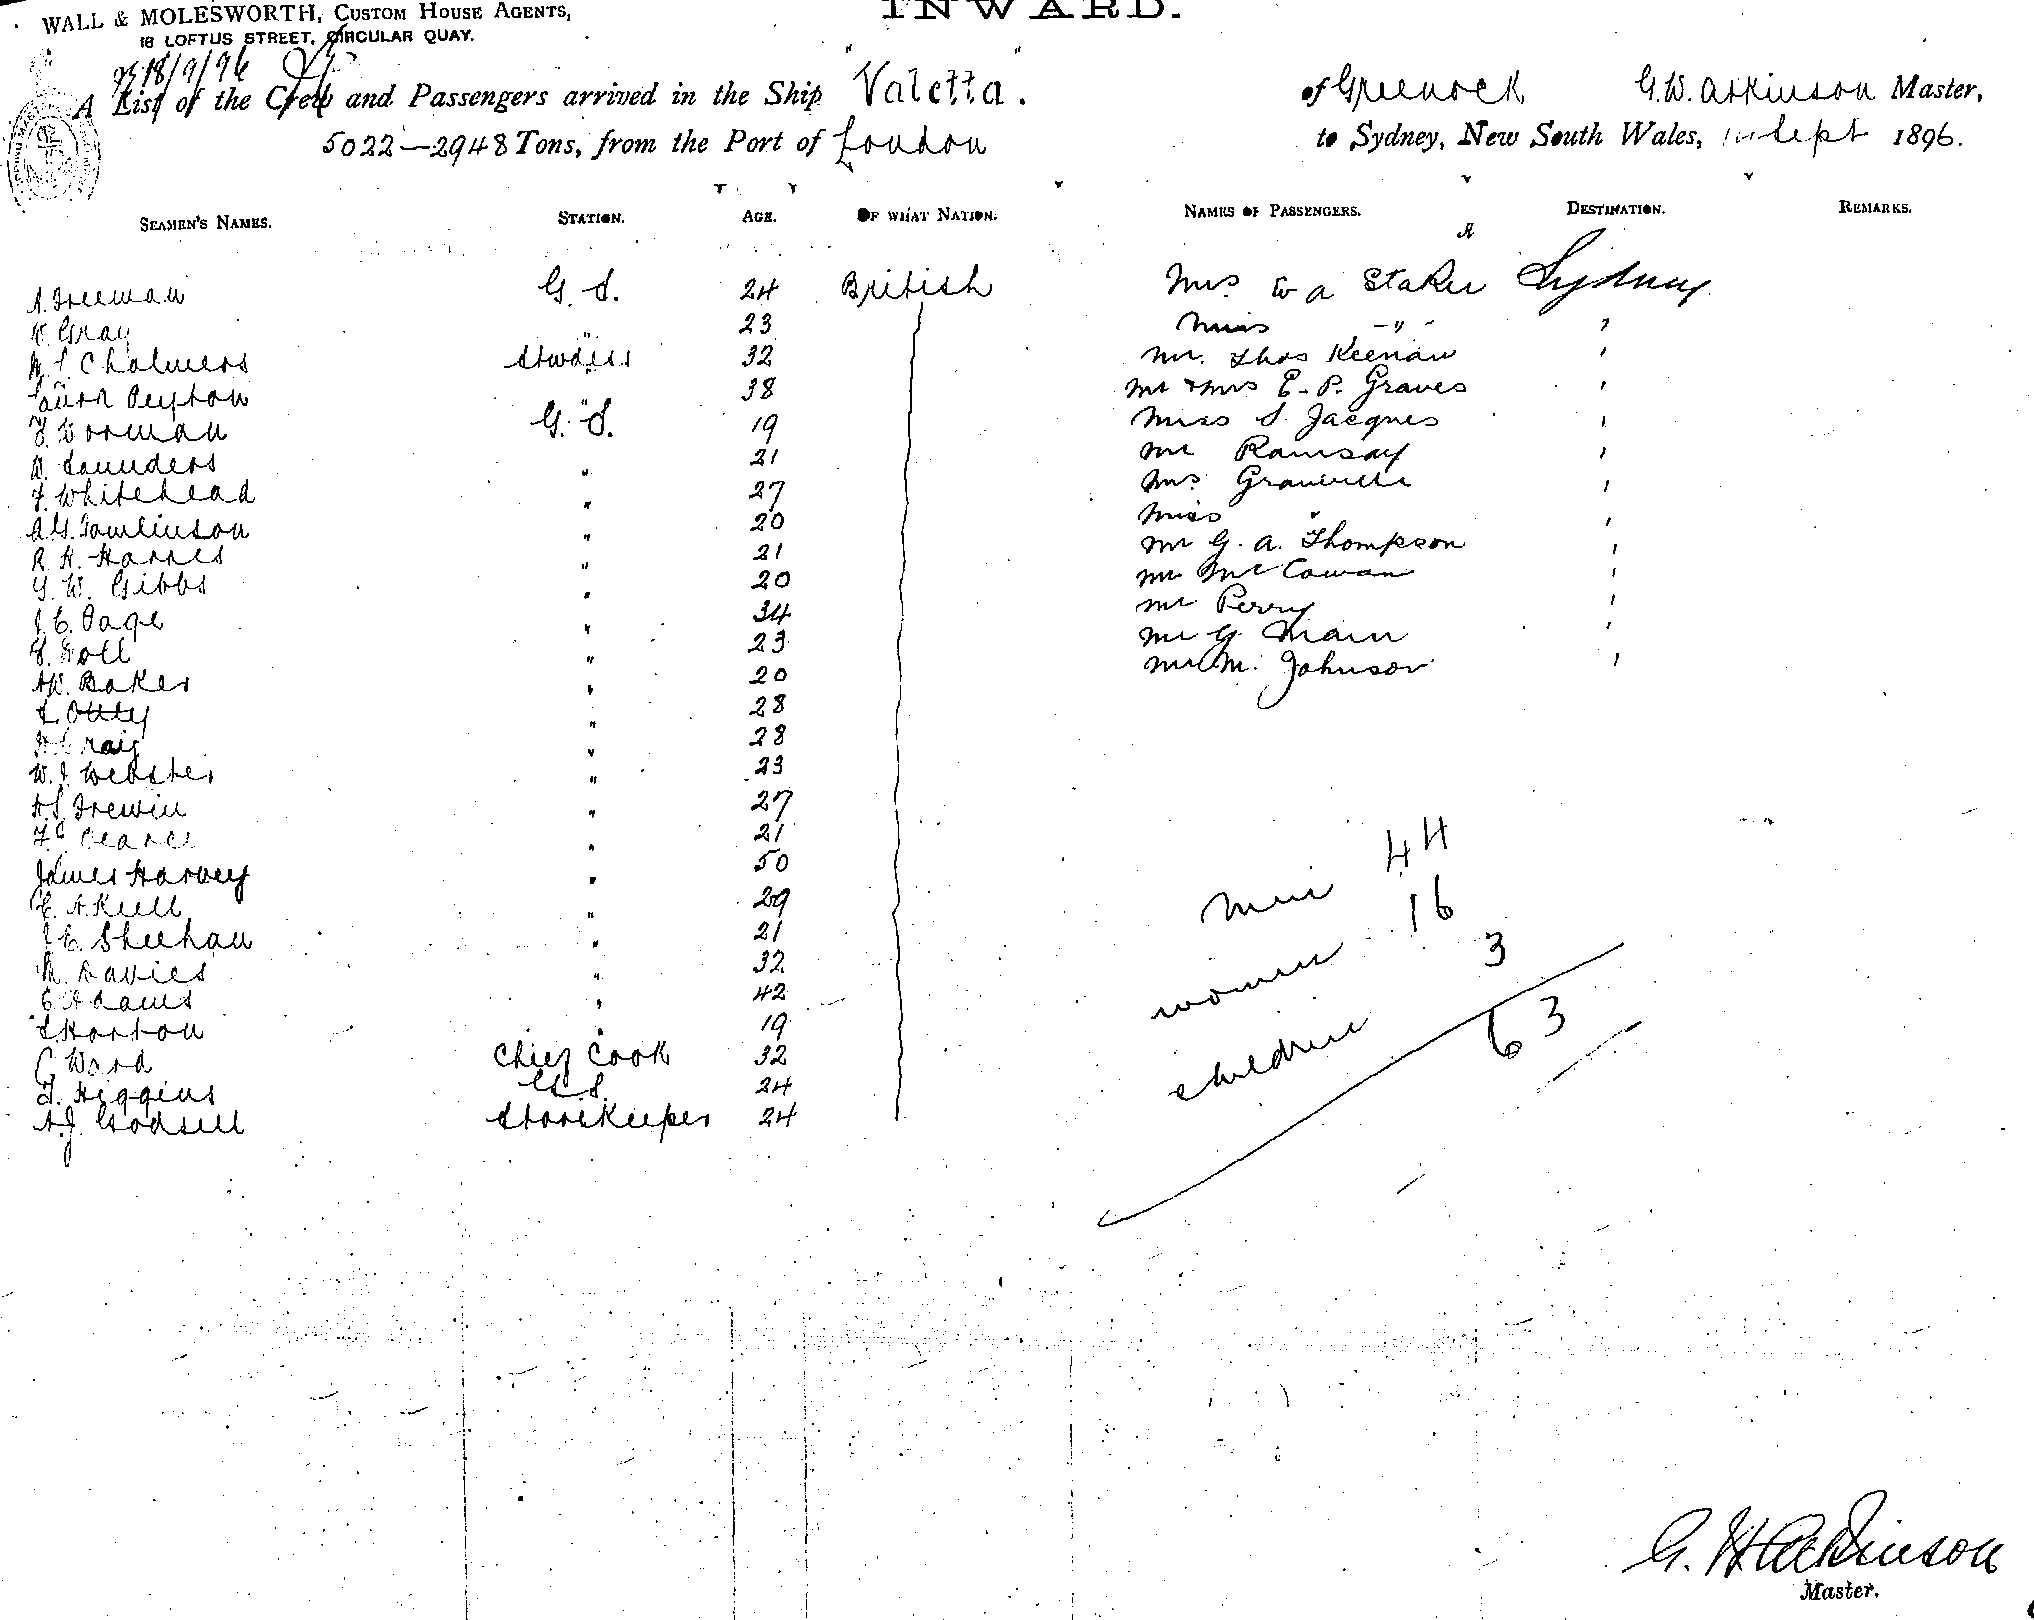 INWARD.
WALL & MOLESWORTH, CUSTOM HOUSE AGENTS,
18 LOFTUS STREET, CIRCULAR QUAY.
18/9/96
A List of the Crew and Passengers arrived in the Ship "Valetta". of Greenock G. W. Atkinson Master,
5022—2948 Tons, from the Port of London to Sydney, New South Wales, Sept 1896.
SEAMEN'S NAMES. STATION. AGE. OF WHAT NATION. NAMES OF PASSENGERS. DESTINATION. REMARKS.
Freeman G. S. 24 British
Gray " 23
Chalmers Stwdess 32
Peyton " 38
Worman G. S. 19
Saunders " 21
F. Whitehead " 27
A. G. Tomlinson " 20
R. H. Harris " 21
G. W. Gibbs " 20
J. C. Page " 34
" 23
Baker " 20
" 28
Craig " 28
W. J. Webster " 23
Trewin " 27
Pearce " 21
James Harvey " 50
" 29
J. C. Sheehan " 21
Davies " 32
C Adams " 42
Horton " 19
C Ward Chief Cook 32
Higgins G. S. 24
A. J. Godsell Storekeeper 24
Mrs W A Staker Sydney
Miss — " — "
Mr. Thos Keenan "
Mr & Mrs E. P. Graves "
Miss S. Jacques "
Mr Ramsay "
Mrs Granville "
Miss " "
Mr G. A. Thompson "
Mr McCowan "
Mr Perry "
Mr G Main "
Mr M. Johnson "
Men 44
women 16
children 3
63
G. W Atkinson
Master.